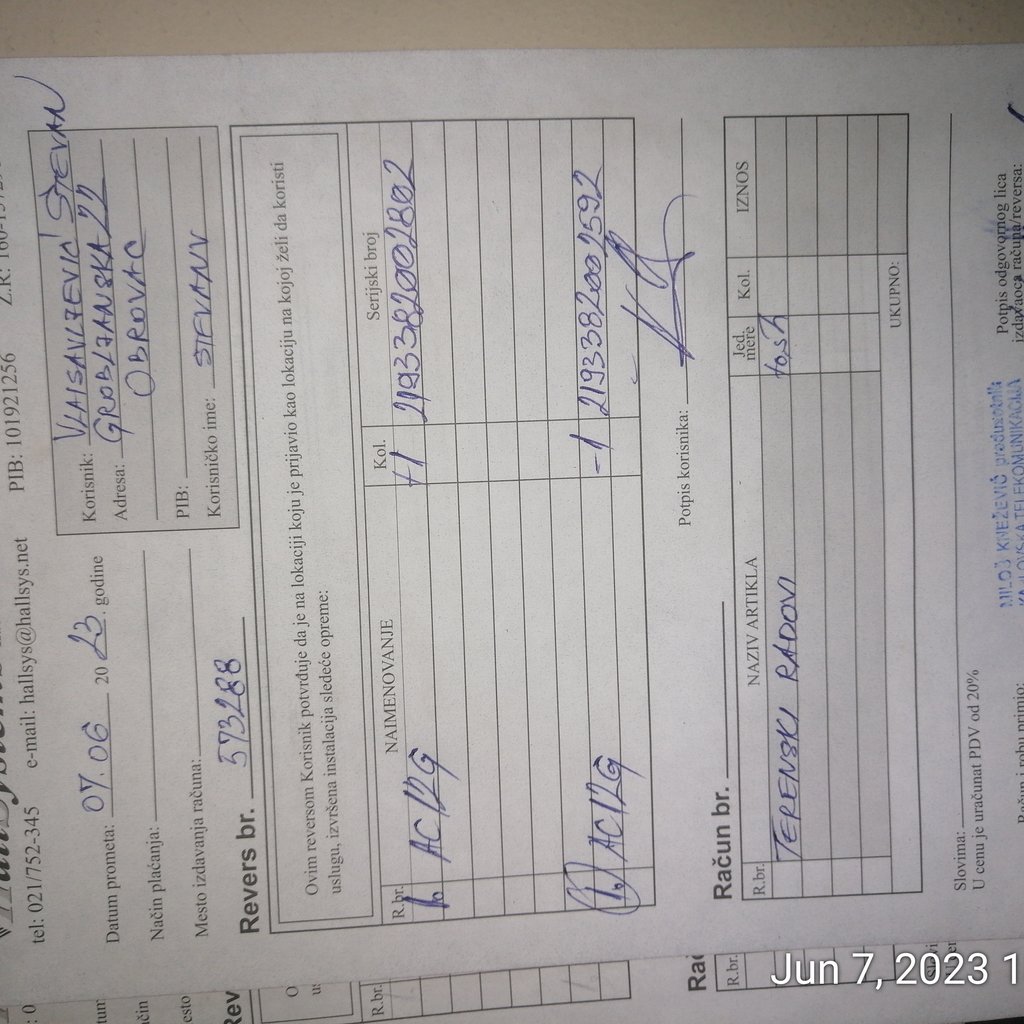 PIB: 101921256
tel: 021/752-345 e-mail: hallsys@hallsys.net
Datum prometa: 07.06 20 23. godine
Način plaćanja:
Mesto izdavanja računa:
Korisnik: VLAISAVLJEVIĆ STEVAN
Adresa: GROBLJANSKA 22
OBROVAC
PIB:
Korisničko ime: STEVANV
573288
Revers br.
Ovim reversom Korisnik potvrđuje da je na lokaciji koju je prijavio kao lokaciju na kojoj želi da koristi
uslugu, izvršena instalacija sledeće opreme:
R.br. NAIMENOVANJE Kol. Serijski broj
1. AC12G +1 2193382002802
1. AC12G -1 2193382002592
Potpis korisnika:
Račun br.
R.br. NAZIV ARTIKLA Jed. mere Kol. IZNOS
TERENSKI RADOVI
UKUPNO:
Slovima:
U cenu je uračunat PDV od 20%
Potpis odgovornog lica
izdavaoca računa/reversa:
MILOŠ KNEŽEVIĆ preduzetnik
Račun i robu primio:
R.br.
R.br.
Jun 7, 2023 1